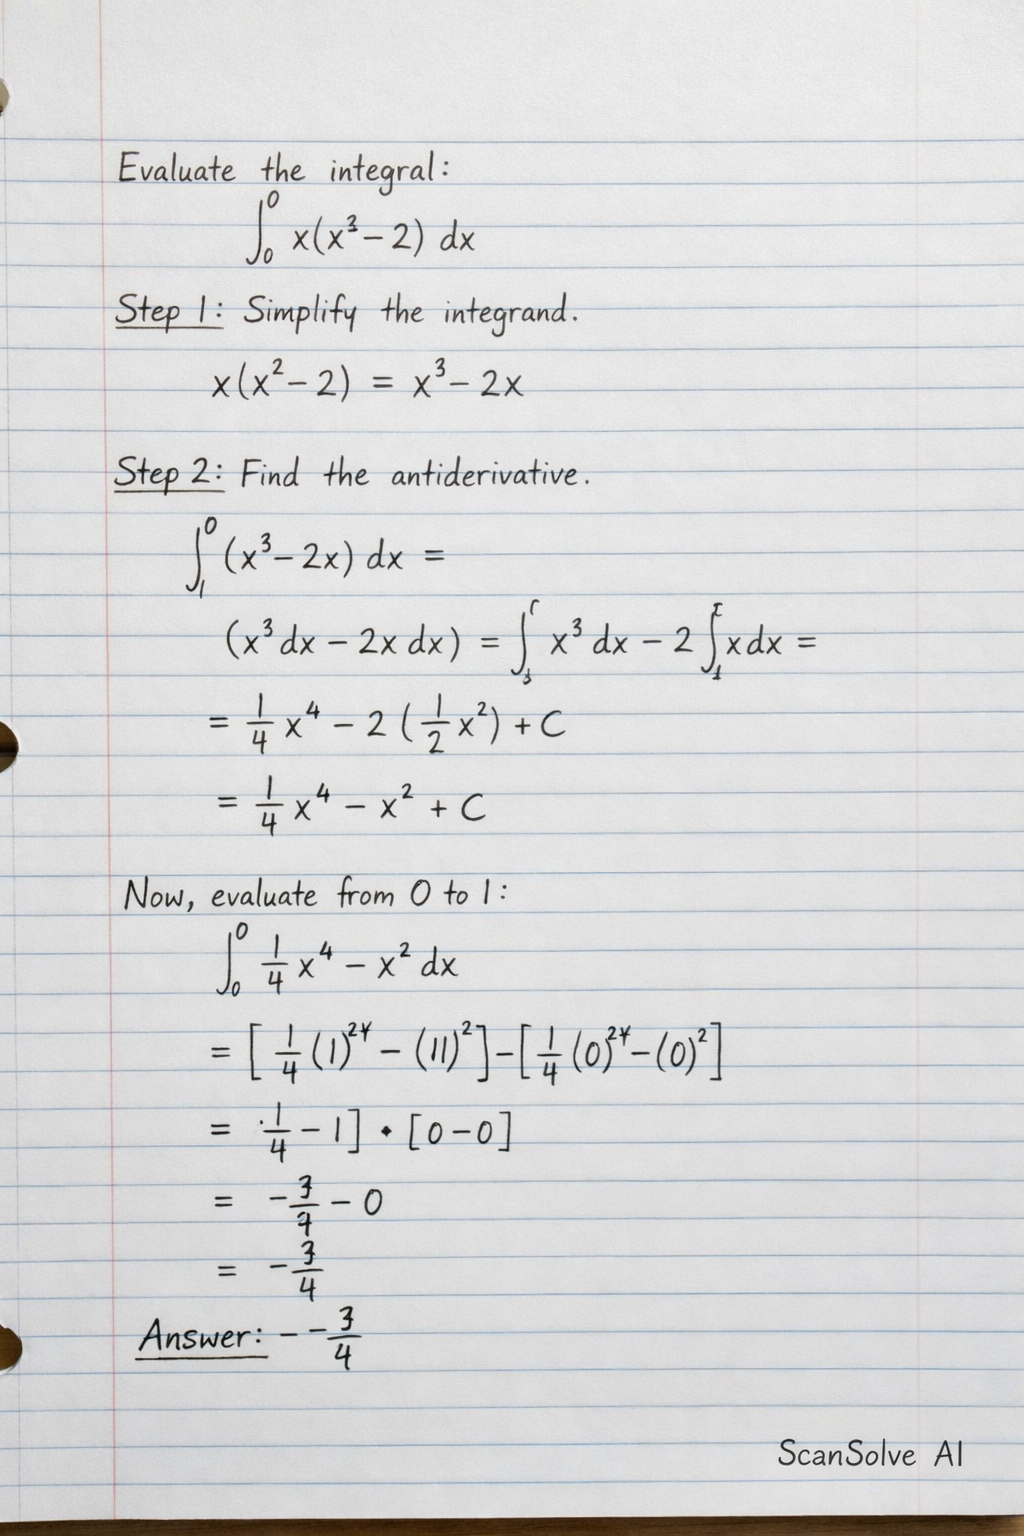 Evaluate the integral:
∫₀⁰ x(x³ − 2) dx
Step 1: Simplify the integrand.
x(x² − 2) = x³ − 2x
Step 2: Find the antiderivative.
∫₁⁰ (x³ − 2x) dx =
(x³ dx − 2x dx) = ∫ x³ dx − 2 ∫ x dx =
= 1/4 x⁴ − 2 (1/2 x²) + C
= 1/4 x⁴ − x² + C
Now, evaluate from 0 to 1:
∫₀⁰ 1/4 x⁴ − x² dx
= [1/4 (1)² − (11)²] − [1/4 (0)² − (0)²]
= 1/4 − 1] • [0 − 0]
= − 3/4 − 0
= − 3/4
Answer: − − 3/4
ScanSolve AI